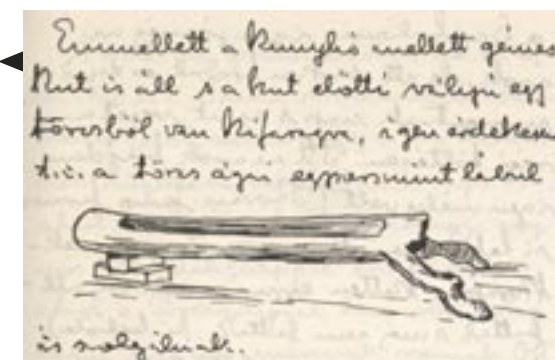 Emmellett a kunyhó mellett gémes
kut is áll s a kut előtti vályu egy
törzsből van kifaragva, igen érdekesen
t.i. a törzs ágai egyszersmint lábul
is szolgálnak.